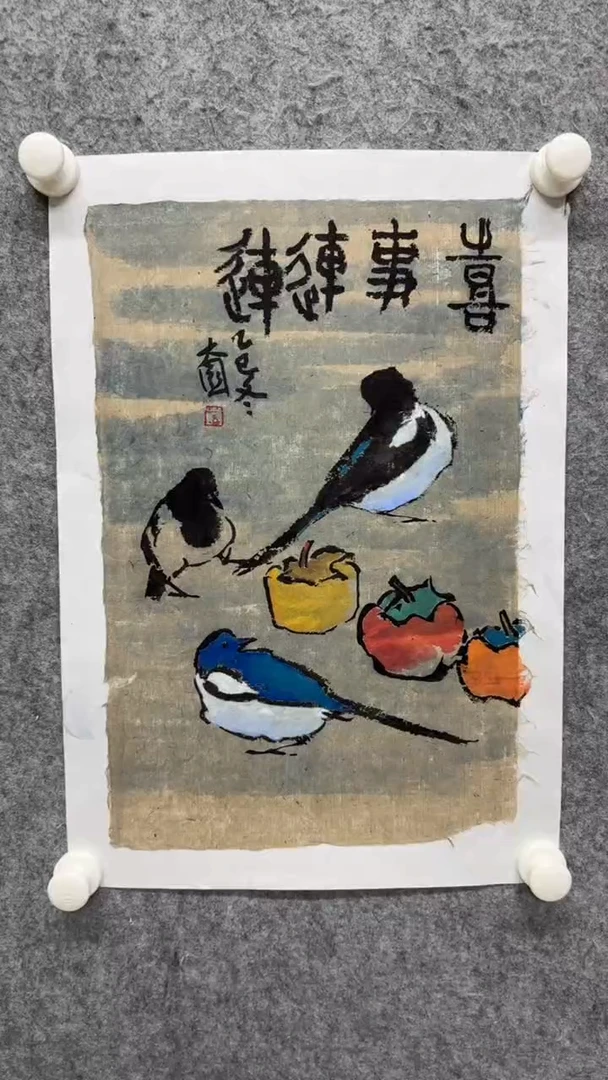 喜事連連
乙巳冬